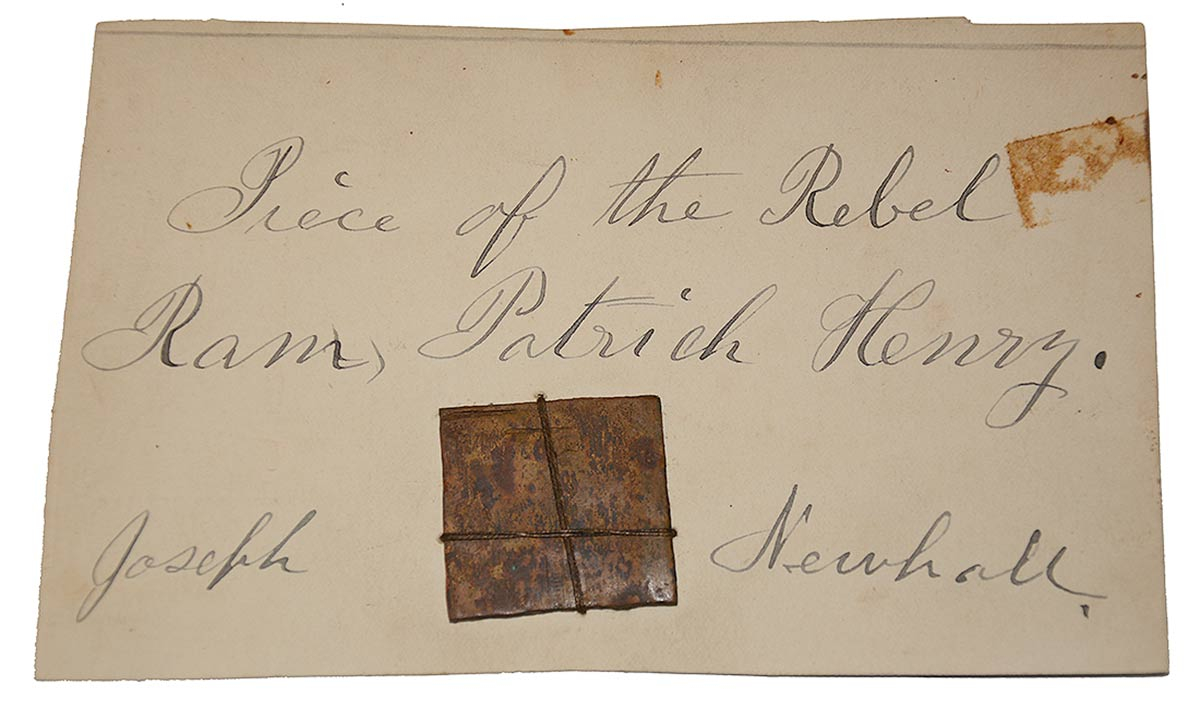 Piece of the Rebel
Ram, Patrick Henry.
Joseph Newhall.